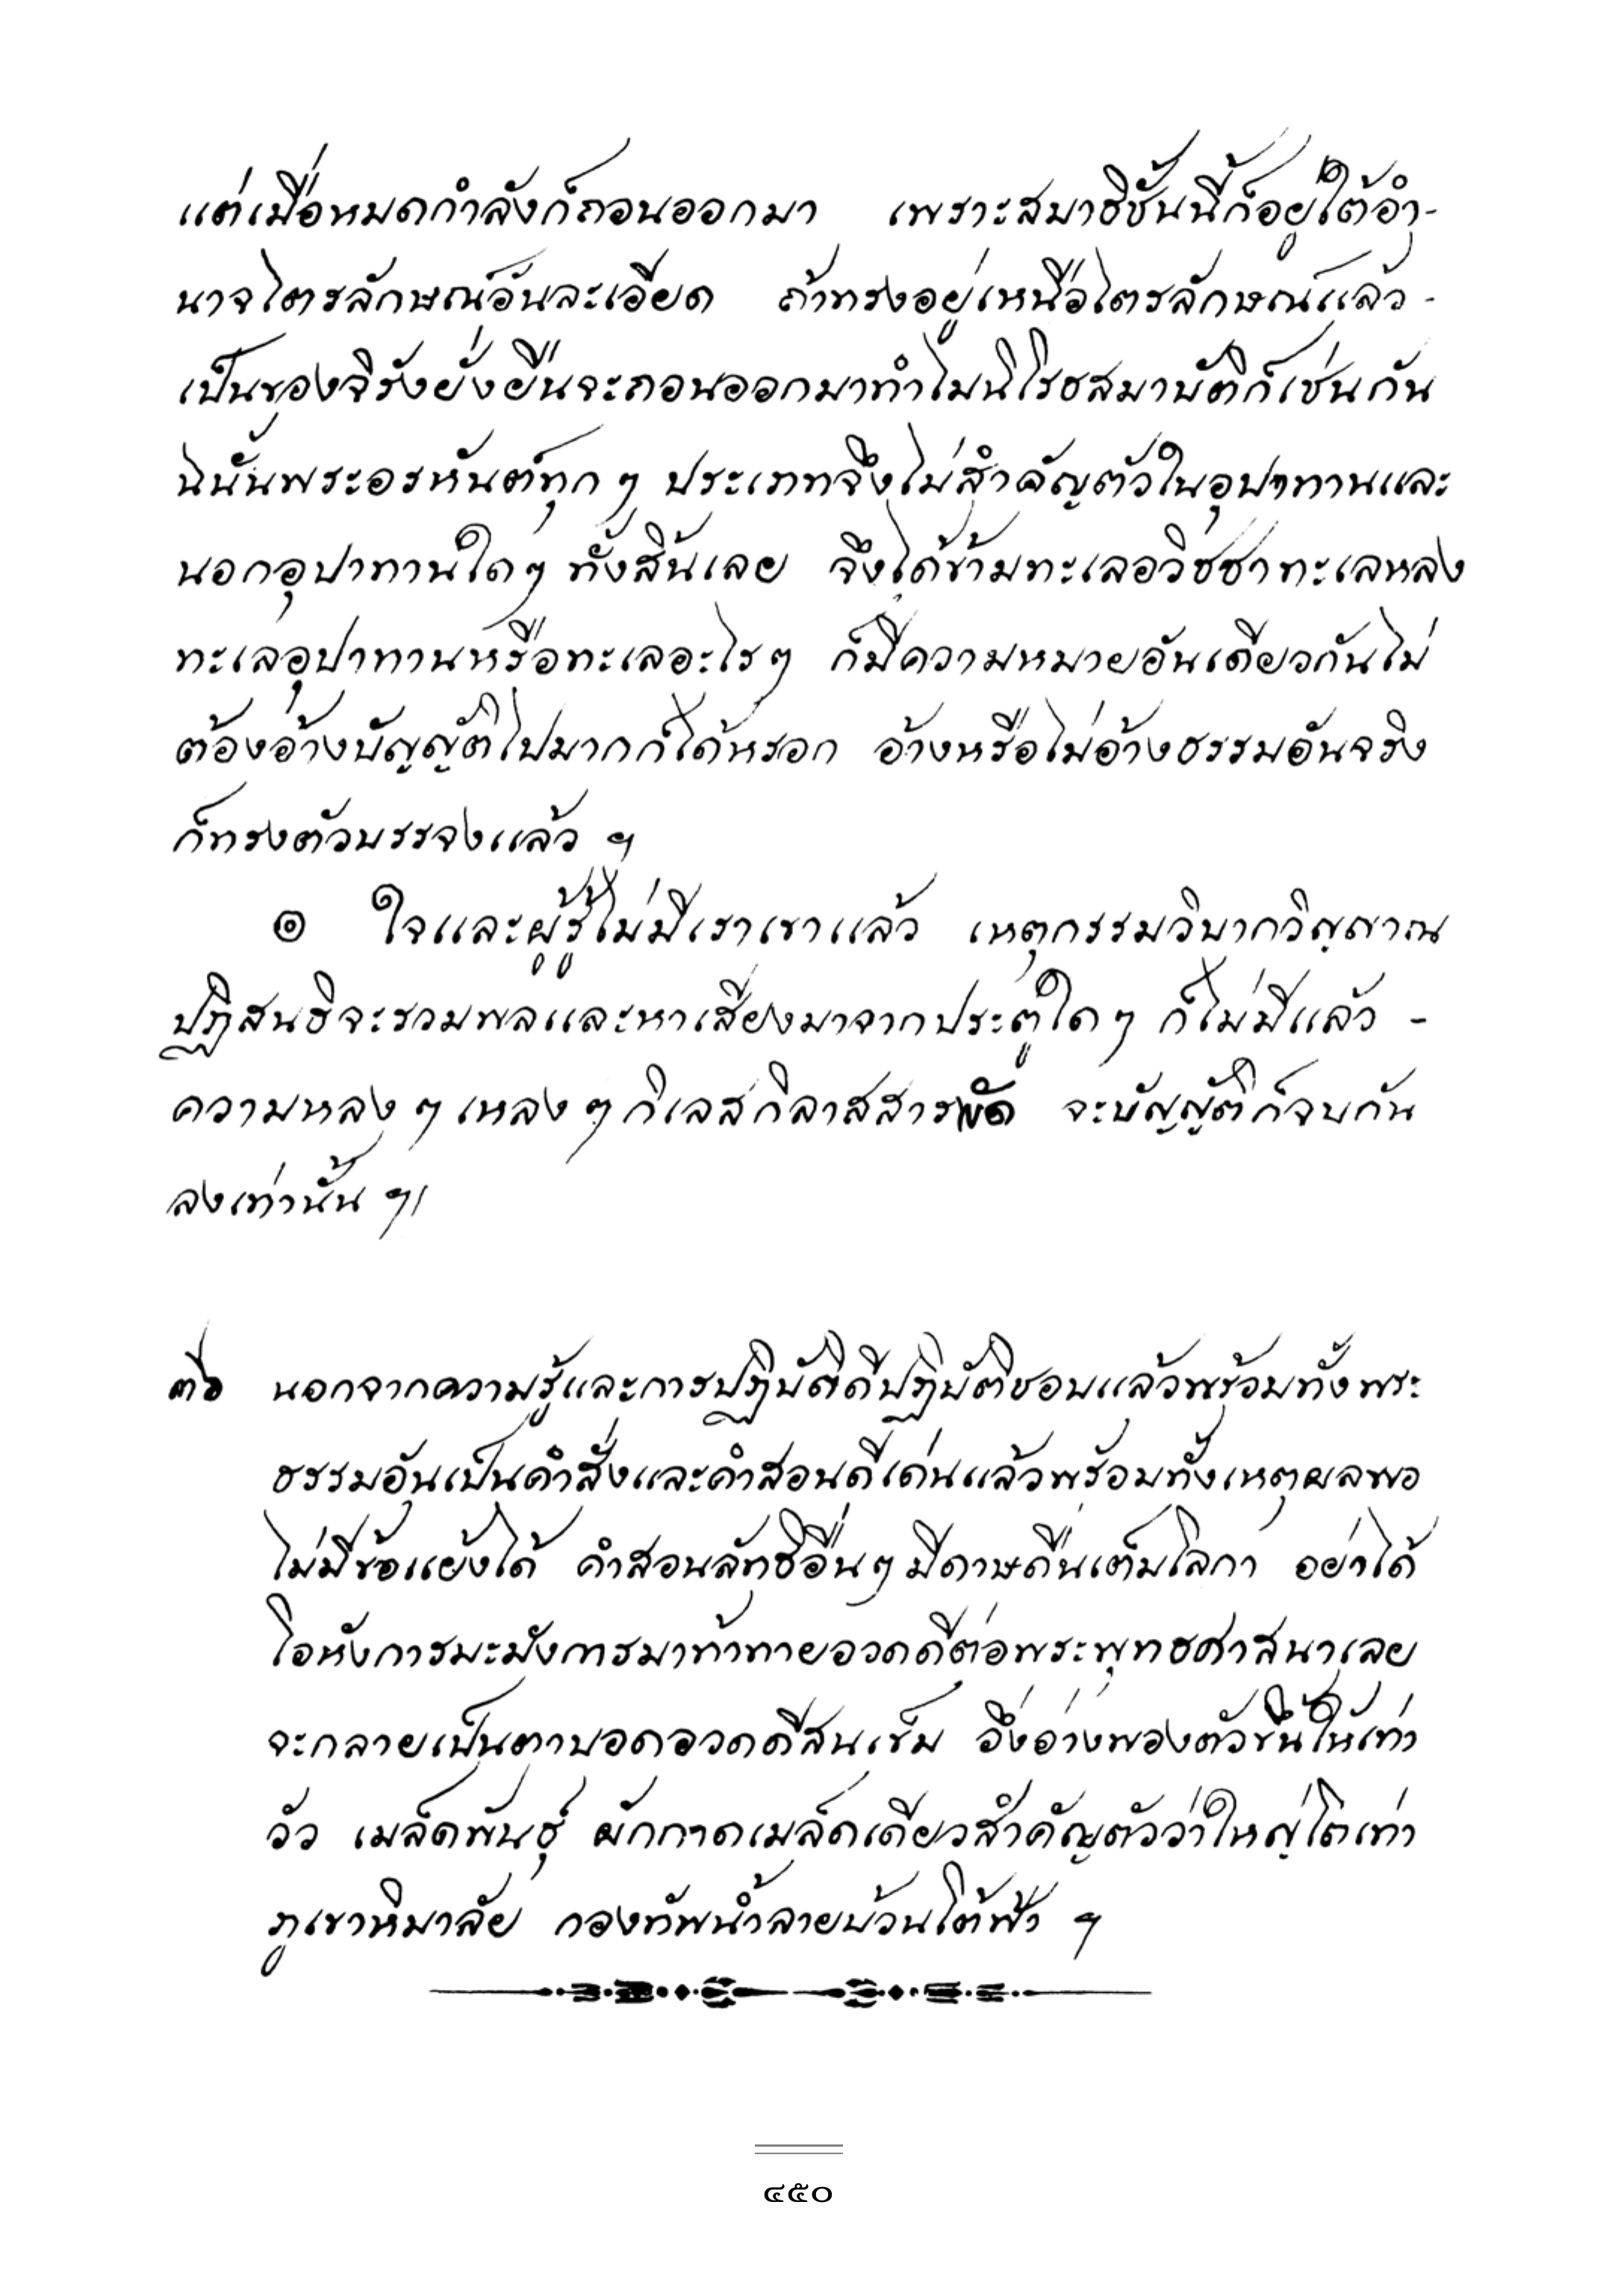 แต่เมื่อหมดกำลังก็ถอนออกมา เพราะสมาธิชั้นนี้ก็อยู่ใต้อำ-
นาจไตรลักษณ์อันละเอียด ถ้าทรงอยู่เหนือไตรลักษณ์แล้ว-
เป็นของจิรังยั่งยืนจะถอนออกมาทำไมนิโรธสมาบัติก็เช่นกัน
ฉนั้นพระอรหันต์ทุกๆ ประเภทจึงไม่สำคัญตัวในอุปาทานและ
นอกอุปาทานใดๆ ทั้งสิ้นเลย จึงได้ข้ามทะเลอวิชชาทะเลหลง
ทะเลอุปาทานหรือทะเลอะไรๆ ก็มีความหมายอันเดียวกันไม่
ต้องอ้างบัญญัติไปมากก็ได้หรอก อ้างหรือไม่อ้างธรรมอันจริง
ก็ทรงตัวบรรจงแล้ว ฯ
๏ ใจและผู้รู้ไม่มีเราเขาแล้ว เหตุกรรมวิบากวิญญาณ
ปฏิสนธิจะรวมพลและหาเสียงมาจากประตูใดๆ ก็ไม่มีแล้ว -
ความหลงๆ เหลงๆ กิเลสกิลาสสารพัด จะบัญญัติก็จบกัน
ลงเท่านั้น ฯ
ต่อ นอกจากความรู้และการปฏิบัติดีปฏิบัติชอบแล้วพร้อมทั้งพระ
ธรรมอันเป็นคำสั่งและคำสอนดีเด่นแล้วพร้อมทั้งเหตุผลพอ
ไม่มีข้อแย้งได้ คำสอนลัทธิอื่นๆ มีดาษดื่นเต็มโลกา อย่าได้
โอหังการมะมังการมาท้าทายอวดดีต่อพระพุทธศาสนาเลย
จะกลายเป็นตาบอดอวดดีสนเข็ม อึ่งอ่างพองตัวขึ้นให้เท่า
วัว เมล็ดพันธุ์ ผักกาดเมล็ดเดียวสำคัญตัวว่าใหญ่โตเท่า
ภูเขาหิมาลัย กองทัพน้ำลายบ้วนใต้ฟ้า ฯ
๔๕๐